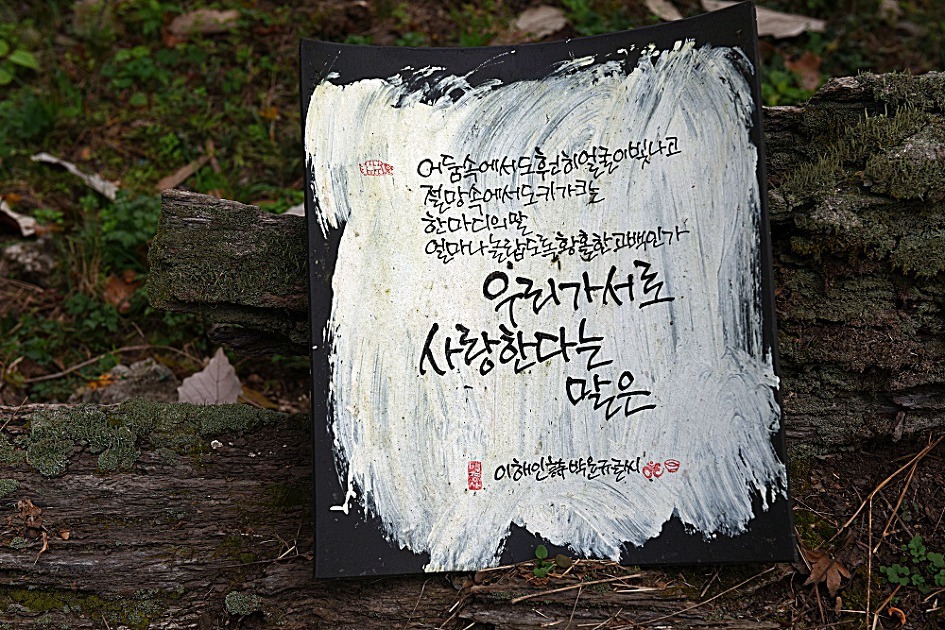 어둠속에서도 훤히 얼굴이 빛나고
절망속에서도 키가 크는
한마디의 말
얼마나 놀랍도록 황홀한 고백인가
우리가 서로
사랑한다는
말은
이해인 놓수 박운규 글씨